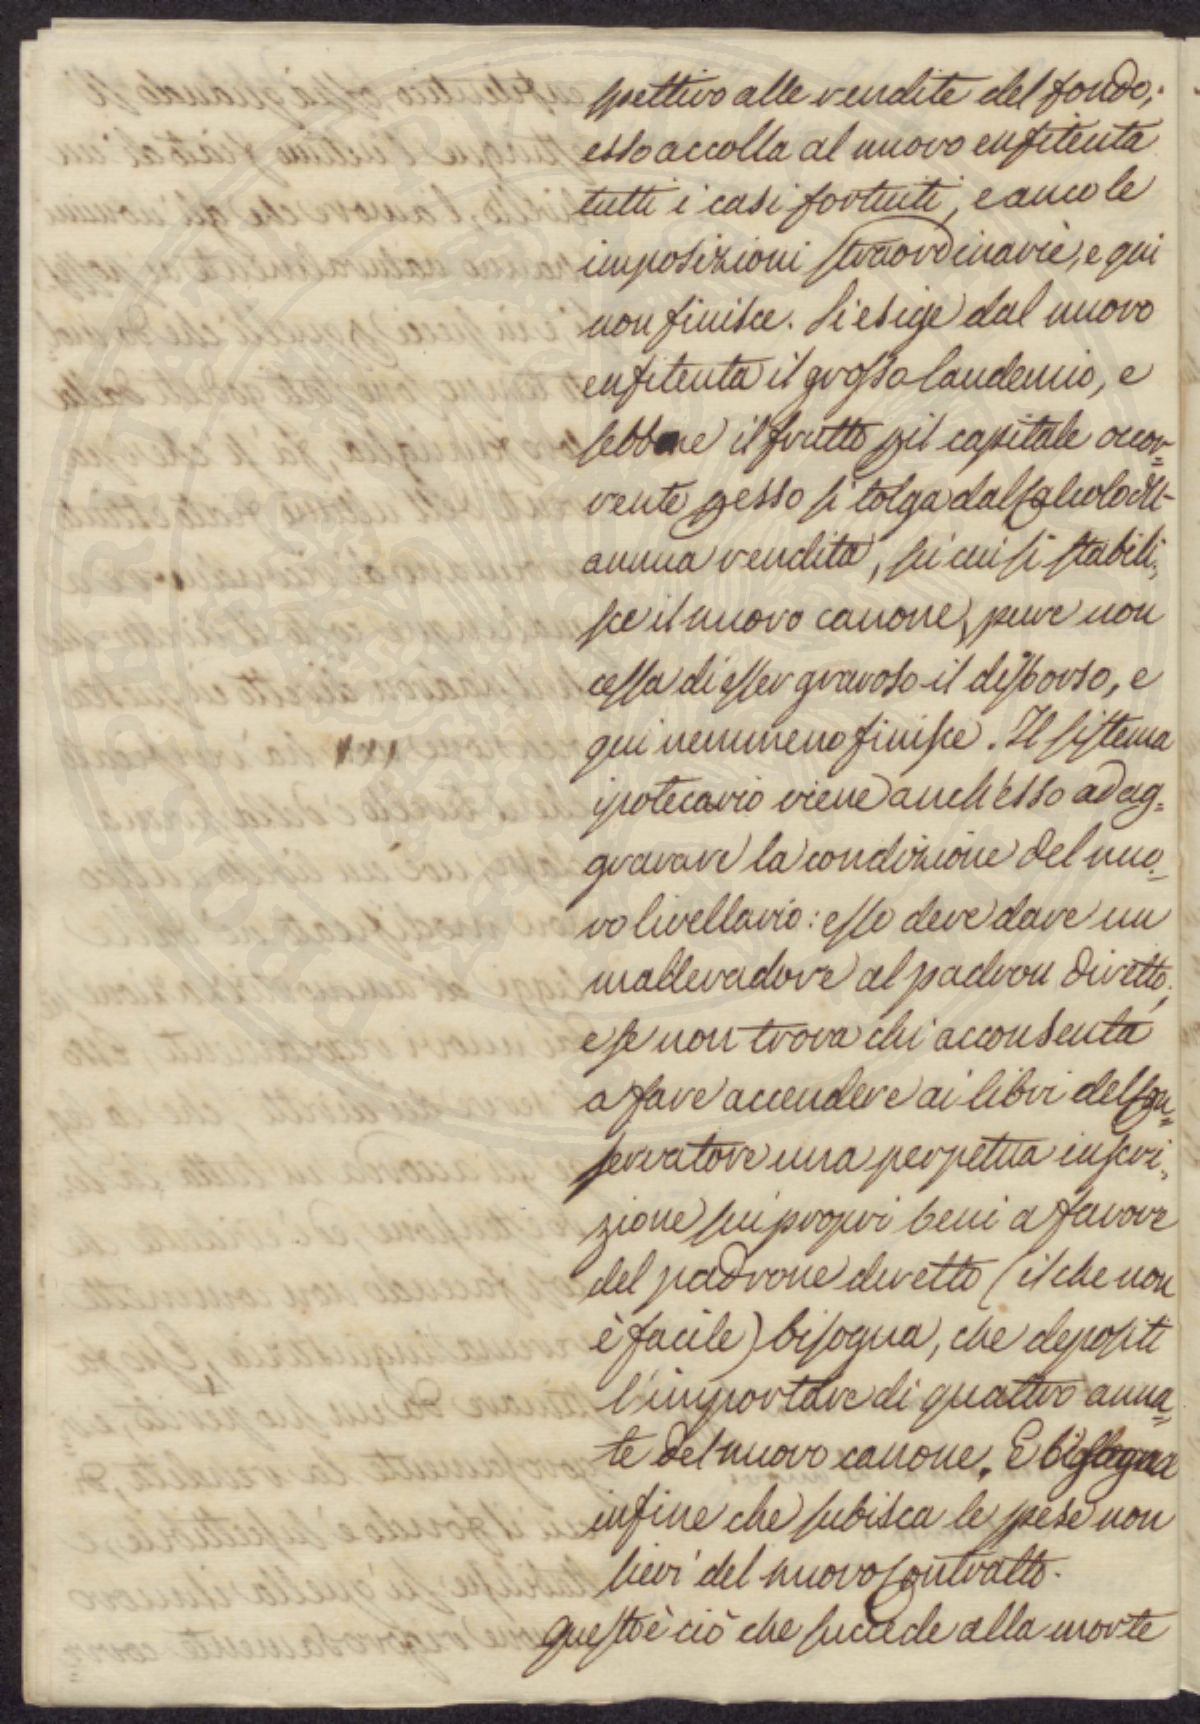 spettivo alle rendite del fondo;
esso accolla al nuovo enfiteuta
tutti i casi fortuiti, e anco le
imposizioni straordinarie, e qui
non finisce. Si esige dal nuovo
enfiteuta il grosso laudemio, e
sebbene il frutto pil capitale occor=
rente pesso si tolga dal calcolo dell-
annua rendita, su cui si stabili=
sce il nuovo canone, pure non
cessa di esser gravoso il disborso, e
qui nemmeno finisce. Il sistema
ipotecario viene anch'esso ad ag=
gravare la condizione del nuo=
vo livellario: esso deve dare un
mallevadore al padron diretto;
e se non trova chi acconsenta
a fare accendere ai libri del Con=
servatore una perpetua inscri=
zione sui propri beni a favore
del padrone diretto (il che non
è facile) bisogna, che depositi
l'importare di quattro anna=
te del nuovo canone. E bisogna
infine che subisca le spese non
lievi del nuovo Contratto.
questo è ciò che succede alla morte